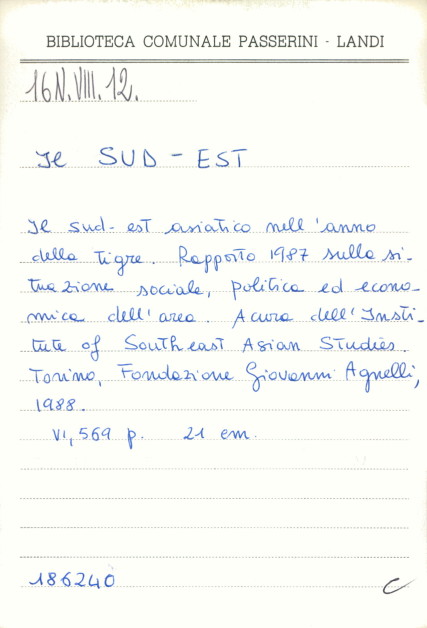 BIBLIOTECA COMUNALE PASSERINI - LANDI
16N.VIII.12.
Il SUD-EST
Il sud-est asiatico nell'anno
della tigre. Rapporto 1987 sulla si-
tuazione sociale, politica ed econo-
mica dell'area. A cura dell'Insti-
tute of Southeast Asian Studies.
Torino, Fondazione Giovanni Agnelli,
1988.
VI, 569 p. 21 cm.
186240
C